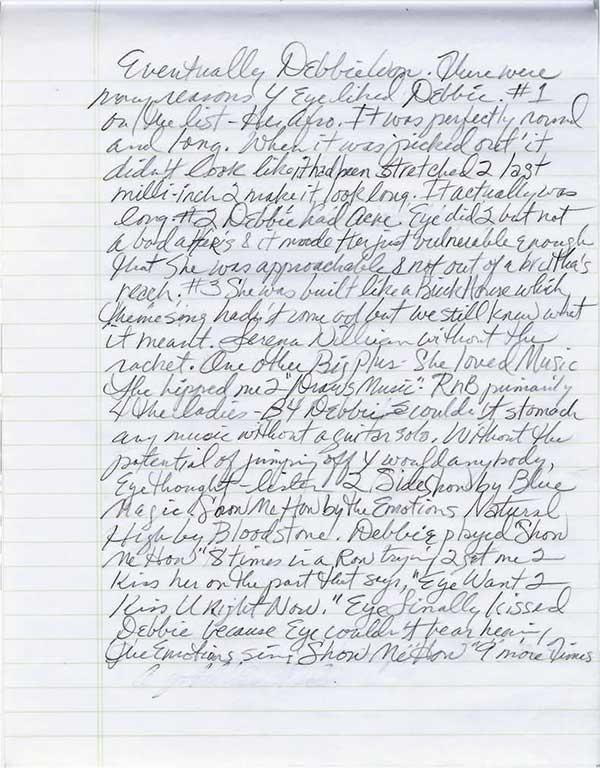 Eventually Debbie won. There were
many reasons 4 Eye liked Debbie. #1
on the list - Her Afro. It was perfectly round
and long. When it was picked out it
didn't look like it had been stretched 2 last
milli-inch 2 make it look long. It actually was
long. #2 Debbie had Acne. Eye did 2 but not
as bad as hers & it made Her just vulnerable enough
that She was approachable & not out of a brutha's
reach. #3 She was built like a Brick House which
theme song hadn't come out but we still knew what
it meant. Serena William without the
racket. One other Big Plus - She loved Music
She hipped me 2 "Draws Music". RnB primarily
4 the ladies - B4 Debbie couldn't stomach
any music without a guitar solo. Without the
potential of jumping off Y would anybody,
Eye thought - listen 2 Sideshow by Blue
Magic, Show Me How by the Emotions Natural
High by Bloodstone. Debbie played Show
Me How" 8 times in a Row tryin' 2 get me 2
Kiss her on the part that says, "Eye Want 2
Kiss U Right Now." Eye finally kissed
Debbie because Eye couldn't bear hearing
the Emotions sing Show Me How" 9 more Times